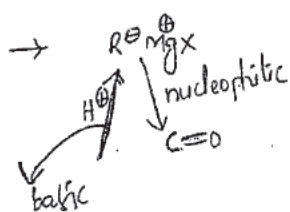 → R⊖ ⊕MgX
H⊕ nucleophilic
C=O
basic